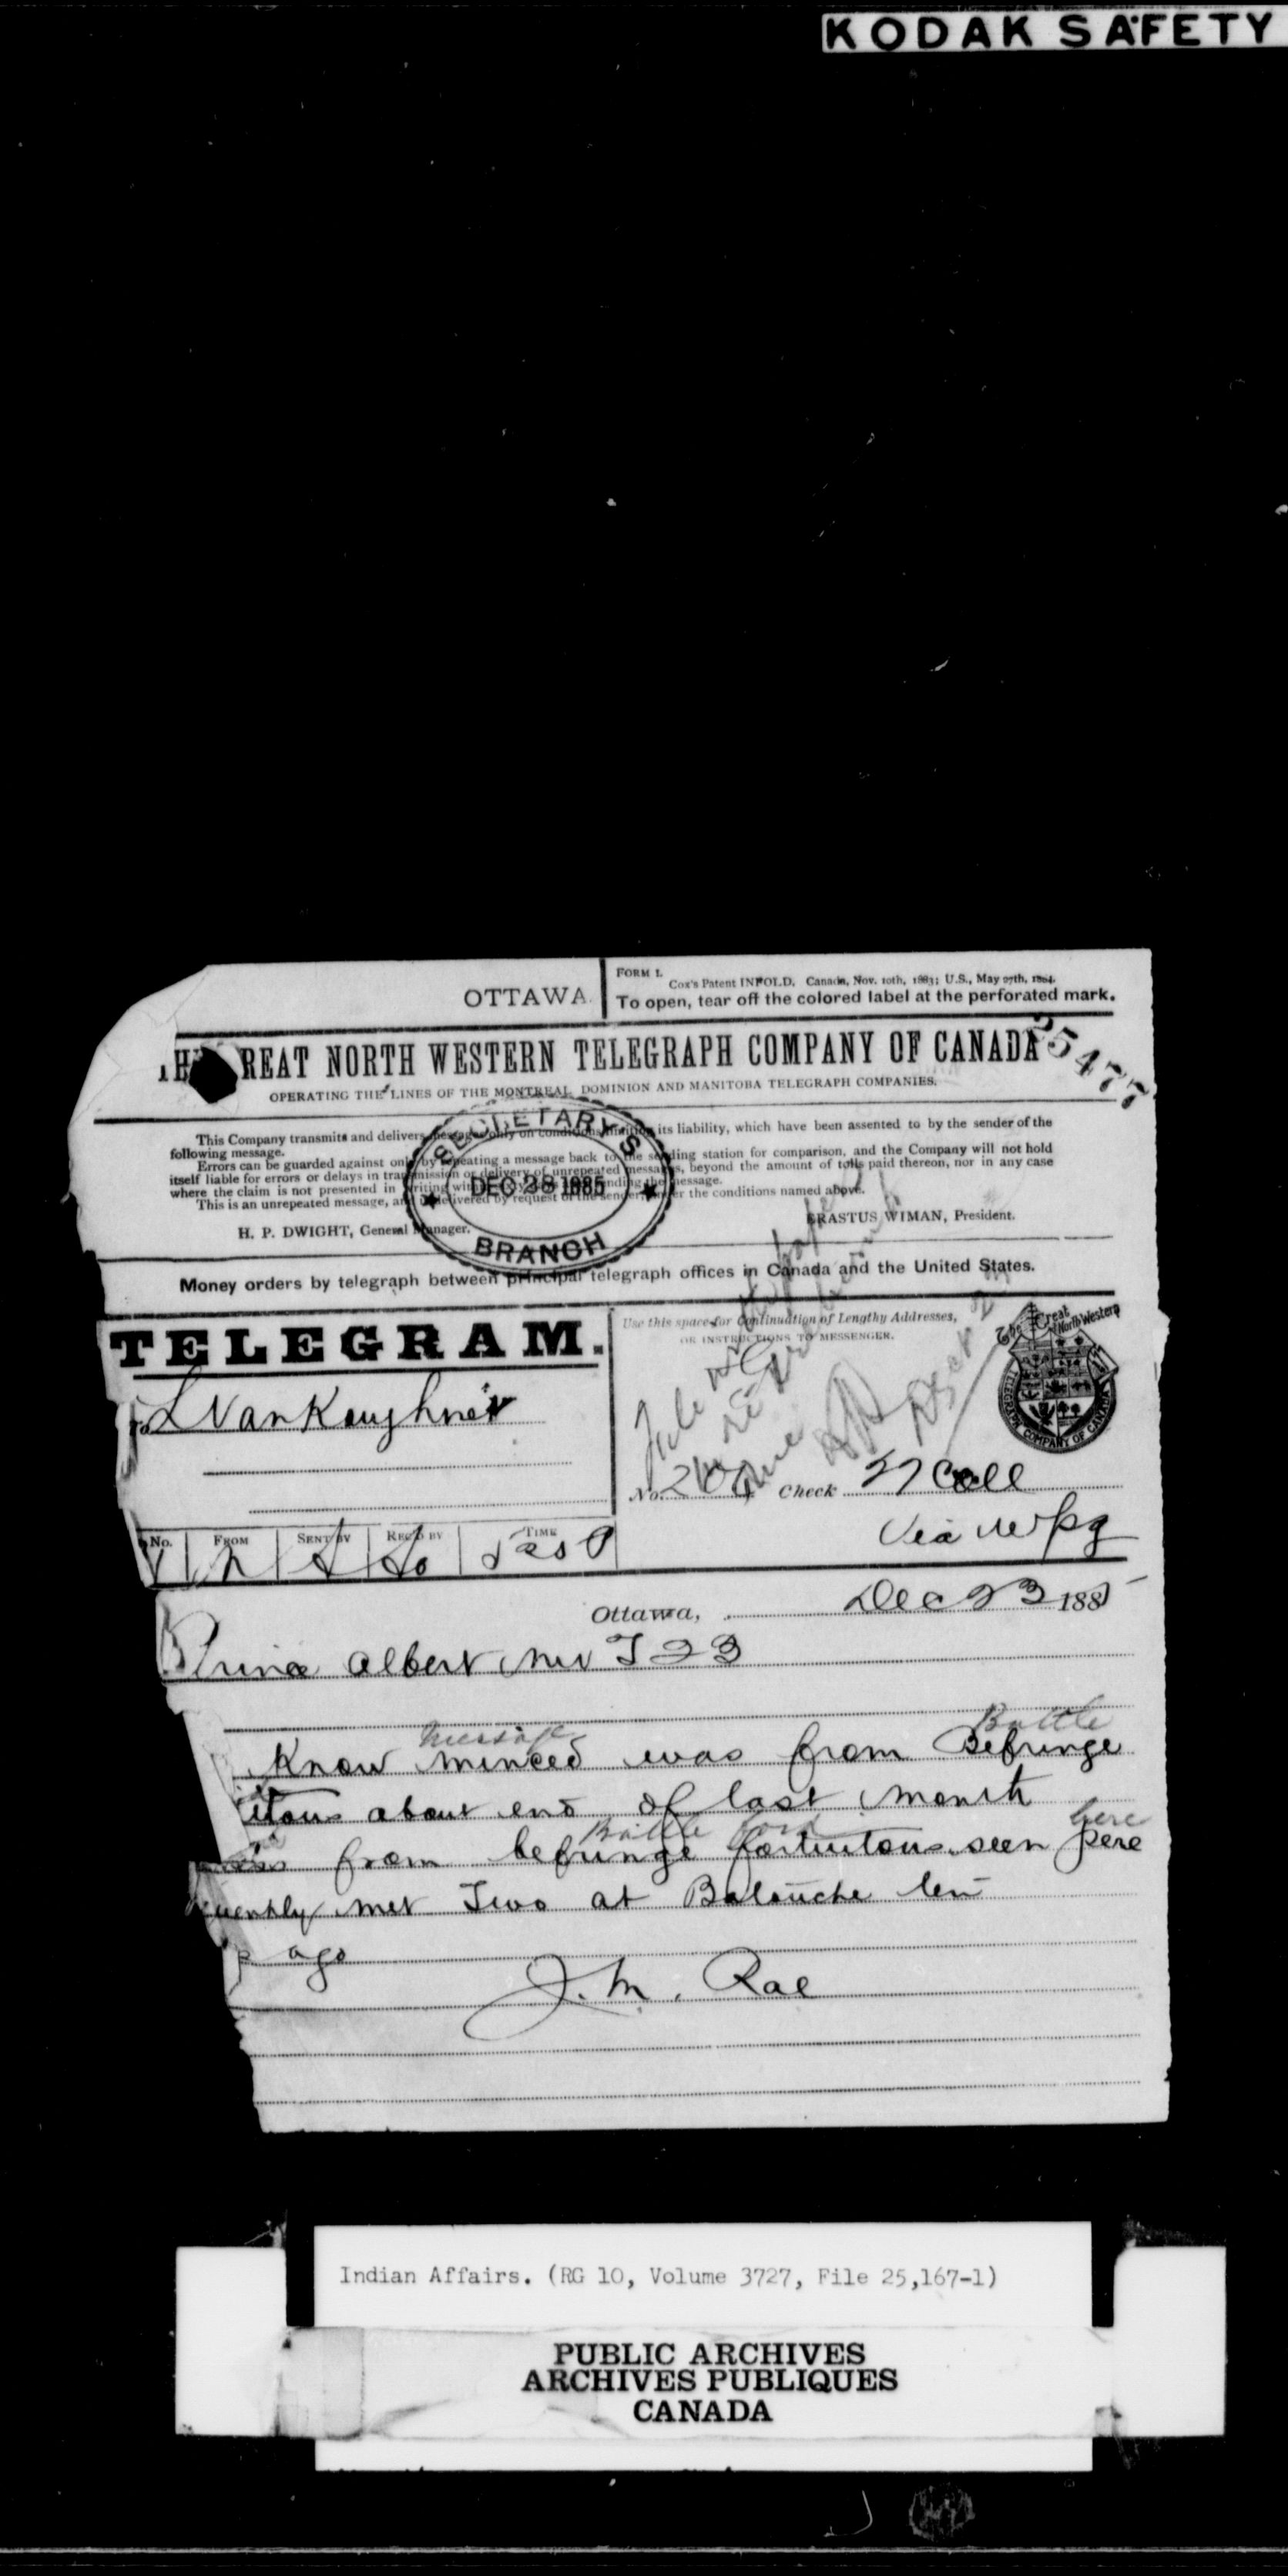 KODAK SAFETY
OTTAWA.
FORM 1.
Cox's Patent INFOLD. Canada, Nov. 10th, 1883; U.S., May 27th, 1884.
To open, tear off the colored label at the perforated mark.
REAT NORTH WESTERN TELEGRAPH COMPANY OF CANADA
25477
OPERATING THE LINES OF THE MONTREAL, DOMINION AND MANITOBA TELEGRAPH COMPANIES.
This Company transmits and delivers messages only on conditions limiting its liability, which have been assented to by the sender of the
following message.
Errors can be guarded against only by repeating a message back to the sending station for comparison, and the Company will not hold
itself liable for errors or delays in transmission or delivery of unrepeated messages, beyond the amount of tolls paid thereon, nor in any case
where the claim is not presented in writing within sending the message.
This is an unrepeated message, and is delivered by request of the sender under the conditions named above.
H. P. DWIGHT, General Manager.
ERASTUS WIMAN, President.
SECRETARY'S
DEC 28 1885
BRANCH
Money orders by telegraph between principal telegraph offices in Canada and the United States.
TELEGRAM.
Use this space for Continuation of Lengthy Addresses,
OR INSTRUCTIONS TO MESSENGER.
The Great North Western
TELEGRAPH COMPANY OF CANADA
To L VanKoughnet
No. Check 27 Coll
Via Wpg
No. FROM SENT BY REC'D BY TIME
Ottawa, Dec 23 1885
Prince Albert NW T 23
message Battle
Know minced was from Befringe
itous about end of last month
Battle ford here
from befringe fortuitous seen pere
quently met Two at Batouche ten
ago
J. M. Rae
Indian Affairs. (RG 10, Volume 3727, File 25,167-1)
PUBLIC ARCHIVES
ARCHIVES PUBLIQUES
CANADA